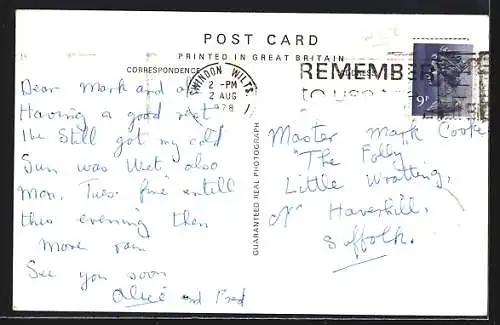 POST CARD
PRINTED IN GREAT BRITAIN
CORRESPONDENCE
SWINDON WILTS.
2 - PM
2 AUG
1978
REMEMBER
9P
Dear Mark and a
Having a good rest
Still got my cold
Sun was wet also
Mon. Tues. fine untill
this evening then
More rain
See you soon
Alice and Fred
GUARANTEED REAL PHOTOGRAPH
Master Mark Cooke
"The Folly
Little Wratting,
Nr Haverhill,
Suffolk.